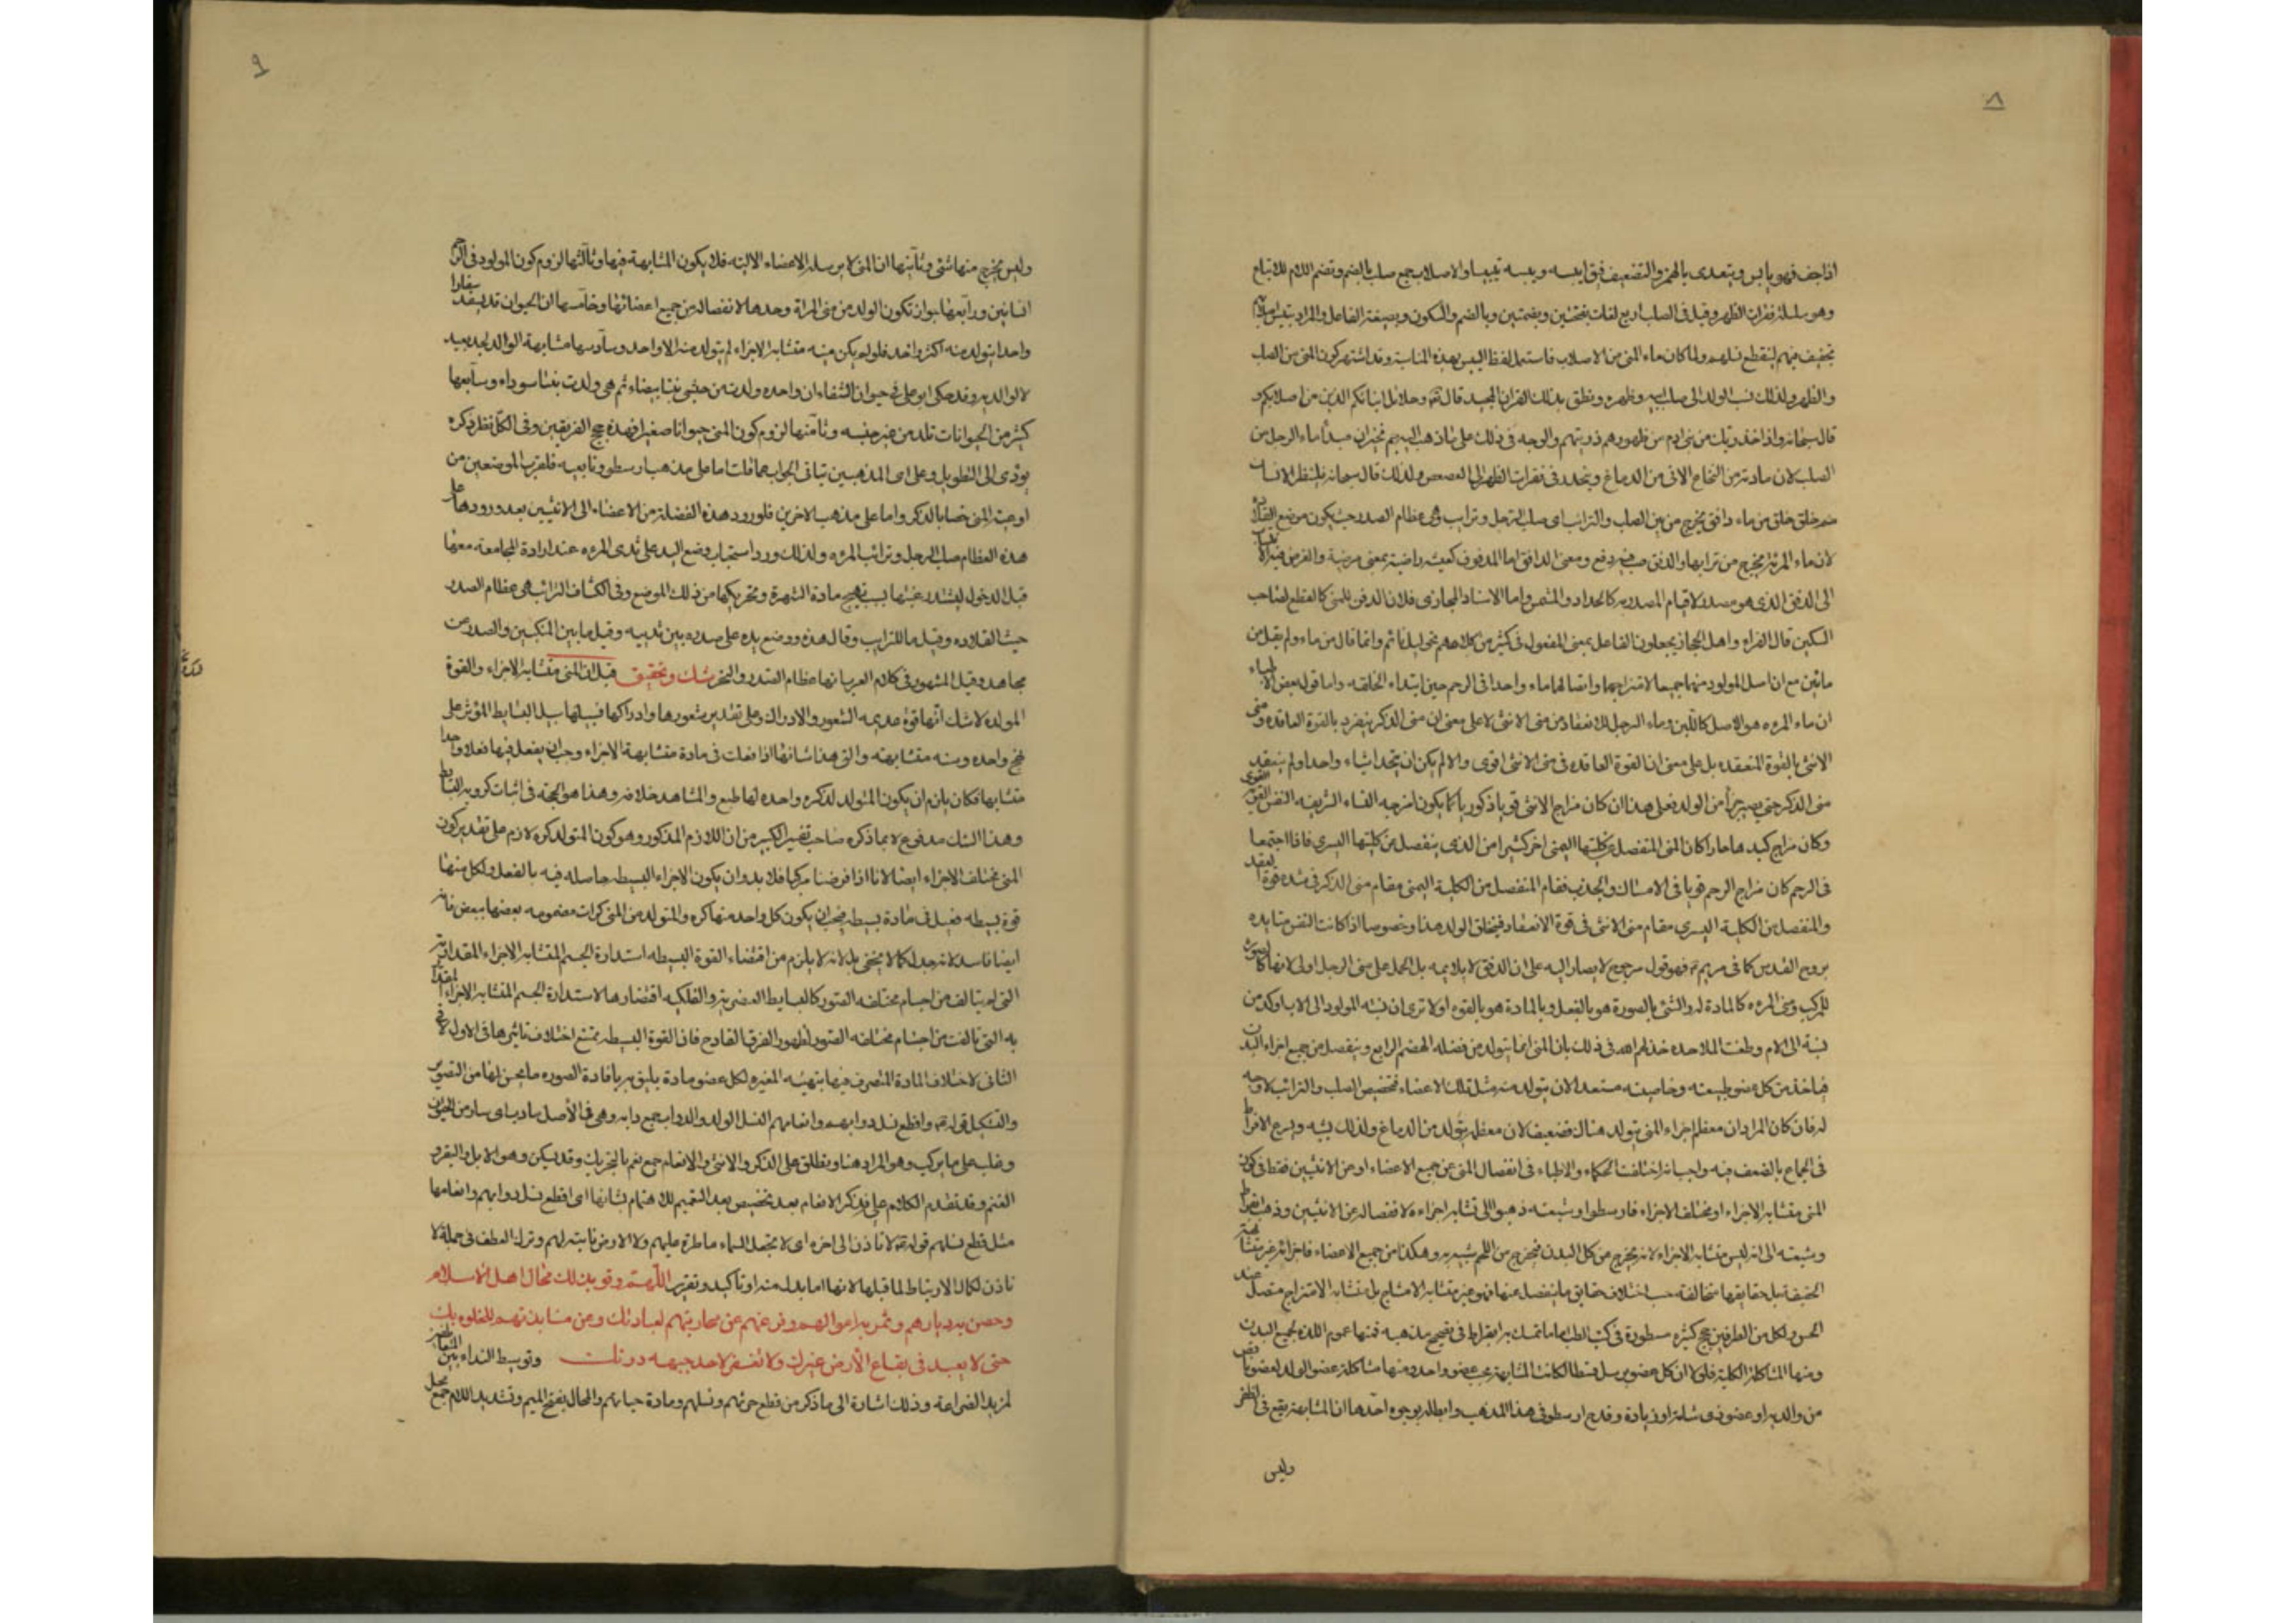 ٨
اذا جف فهو يابس ويتعدى بالهمزة والتضعيف فيق ايبسه ويبسه تيبيسا والاصلاب جمع صلب بالضم وتضم اللام للاتباع
وهو سلسلة فقرات الظهر وقيل فى الصلب اربع لغات بفتحتين وبضمتين وبالضم والسكون وبصيغة الفاعل والمراد بتيبيس اصلابهم
تجفيف منيهم لينقطع نسلهم ولما كان ماء المنى من الاصلاب فاستعمل لفظ اليبس بهذه المناسبة وقد اشتهر كون المنى من الصلب
والظهر ولذلك نسب الولد الى صلب ابيه وظهره ونطق بذلك القران المجيد قال تعه وحلائل ابنائكم الذين من اصلابكم و
قال سبحانه واذ اخذ ربك من بنى ادم من ظهورهم ذريتهم والوجه فى ذلك على ما ذهب اليه بعضهم ان مبدأ ماء الرجل من
الصلب لان مادته من النخاع الاتى من الدماغ وينحدر فى فقرات الظهر الى العصعص ولذلك قال سبحانه فلينظر الانسان
مم خلق خلق من ماء دافق يخرج من بين الصلب والترائب اى صلب الرجل وترايب وهى عظام الصدر حيث يكون موضع القلادة
لان ماء المرئة يخرج من ترايبها والدفق صب فيه دفع ومعنى الدافق اما المدفوق كعيشة راضية بمعنى مرضية والغرس
الى الدفق الذى هو مصدر لاقيام المصدر به كالحداد والمشمس واما الاسناد المجازى فلان الدفق للمنى كالقطع لصاحب
السكين قال الفراء واهل الحجاز يجعلون الفاعل بمعنى المفعول فى كثير من كلامهم نحو ليل نائم وانما قال من ماء ولم يقل من
مائين مع ان اصل المولود منهما جميعا لامتزاجهما واتصالهما ماء واحدا فى الرحم حين ابتداء الخلقه واما قول بعض الاطباء
ان ماء المرءه هو الاصل كاللبن وماء الرجل كالانفحة من منى الانثى لا على معنى ان منى الذكر ينفرد بالقوة العاقده ومنى
الانثى بالقوة المنعقده بل على معنى ان القوة العاقده فى منى الانثى اقوى والا لم يكن ان يتحدا شيئاء واحدا ولم ينعقد
منى الذكر حتى يصير جزأ من الولد فعلى هذا ان كان مزاج الانثى قويا ذكوريا كما يكون امزجه النساء الشريفه النفس القويه القوى
وكان مزاج كبدها حارا كان المنى المنفصل عن كليتها اليمنى احر كثيرا من الذى ينفصل عن كليتها اليسرى فاذا اجتمعا
فى الرحم كان مزاج الرحم قويا فى الامساك والجذب فقام المنفصل من الكلية اليمنى مقام منى الذكر فى شده قوة العقد
والمنفصل من الكلية اليسرى مقام منى الانثى فى قوة الانعقاد فيتخلق الولد هذا وخصوصا اذا كانت النفس متايده
بروح القدس كما فى مريم ع فهو قول مرجوح لا يصار اليه على ان الدفق لا يلايمه بل الحمل على منى الرجل اولى لانها كالصورة
للمركب ومنى المرءه كالمادة له والشئ بالصورة هو بالفعل وبالمادة هو بالقوه اولا ترى ان نسبة المولود الى الاب اوكد من
نسبة الى الام وطعنت الملاحده خذلهم الله فى ذلك بان المنى انما يتولد من فضله الهضم الرابع وينفصل من جميع اجزاء البدن
فياخذ من كل عضو طبيعته وخاصيته مستعدا لان يتولد منه مثل تلك الاعضاء فتخصيص الصلب والترائب لا وجه
له فان كان المراد ان معظم اجزاء المنى يتولد هناك فضعيف لان معظمه يتولد من الدماغ ولذلك يشبهه ويسرع الافراط
فى الجماع بالضعف فيه واجيب انه اختلفت الحكماء والاطباء فى انفصال المنى عن جميع الاعضاء او من الانثيين فقط فى كون
المنى متشابه الاجزاء او مختلف الاجزاء فارسطو وشيعته ذهبوا الى تشابه اجزاءه لانفصاله عن الانثيين وذهب بقراط
وشيعته الى انه ليس متشابه الاجزاء لانه يخرج من كل البدن فيخرج من اللحم شبيه به وهكذا من جميع الاعضاء فاجزائه غير متشابهة
الحقيقة بل حقايقها متخالفة حسب اختلاف حقايق ما ينفصل عنها فهو غير متشابه الامشاج بل متشابه الامتزاج متصل عند
الحس ولكل من الطرفين حجج كثيره مسطورة فى كتب الطب اما ما تمسك به ابقراط فى تصحيح مذهبه فمنها عموم اللذه لجميع البدن
ومنها المشاكلة الكلية فلولا ان كل عضو يرسل قسطا لكانت المشابهة بحسب عضو واحد ومنها مشاكلة عضو الولد لعضو ناقص
من والديه او عضو ذى شامة او زيادة وقدح ارسطو فى هذا المذهب وابطاله بوجوه احدها ان المشابهة يقع فى الظفر
وليس
٩
وليس يخرج منها شئ وثانيها ان المنى لا يرسله الاعضاء الالية فلا يكون المشابهة فيها وثالثها لزوم كون المولود فى الرحم
انسانين ورابعها جواز تكون الولد من منى المراة وحدها لانفصاله من جميع اعضائها وخامسها ان الحيوان قد يسفد سفادا
واحدا يتولد منه اكثر من واحد فلو لم يكن منيه متشابه الاجزاء لم يتولد منه الا واحد وسادسها مشابهة الوالد لجد بعيد
لا لوالديه وقد حكى ابو على فى حيوان الشفاء ان واحده ولدت من حبشى بنتا بيضاء ثم هى ولدت بنتا سوداء وسابعها
كثير من الحيوانات تلد من غير جنسه وثامنها لزوم كون المنى حيوانا صغيرا فهذه حجج الفريقين وفى الكل نظر ذكره
يؤدى الى التطويل وعلى اى المذهبين يتاتى الجواب عما قلت اما على مذهب ارسطو وتابعيه فلقرب الموضعين من
اوعية المنى خصا بالذكر واما على مذهب الاخرين فلورود هذه الفضلة من الاعضاء الى الانثيين بعد ورودها على
هذه العظام صلب الرجل وترائب المرءه ولذلك ورد استحباب وضع اليد على ثدى المرءه عند ارادة المجامعة معها
قبل الدخول ليشتد رغبتها بسبب تهيج مادة الشهوة وتحريكها من ذلك الموضع وفى الكشاف الترائب هى عظام الصدر
حيث القلاده وقيل ما للترايب وقال هذه ووضع يده على صدره بين ثدييه وقيل ما بين المنكبين والصدر عن
مجاهد وقيل المشهور فى كلام العرب انها عظام الصدر والنحر شك وتحقيق قيل ان المنى متشابه الاجزاء والقوة
المولده لا شك انها قوة عديمه الشعور والادراك وعلى تقدير شعورها وادراكها فسبيلها سبيل البسايط المؤثر على
نهج واحده وسنه متشابهه والتى هذا شانها اذا فعلت فى مادة متشابهة الاجزاء وجب ان يفعل فيها فعلا واحدا
متشابها فكان يلزم ان يكون المتولد لذكره واحده لها طبع والمشاهد خلافه وهذا هو الحجة فى اثبات كروية البسايط
وهذا الشك مدفوع لا بما ذكره صاحب تفسير الكبير من ان اللازم المذكور وهو كون المتولد كره لازم على تقدير كون
المنى مختلف الاجزاء ايضا لانا اذا فرضنا مركبا فلا بد وان يكون الاجزاء البسيطه حاصله فيه بالفعل ولكل منها
قوة بسيطه فيفعل فى مادة بسيطه فيجب ان يكون كل واحد منها كره والمتولد من المنى كرات مضمومه بعضها ببعض فانه
ايضا فاسد لانه جدل كما لا يخفى بل لانه لا يلزم من اقتضاء القوة البسيطه استدارة الجسم المتشابه الاجزاء المقدارية
التى لم يتالف من اجسام مختلفه الصور كالبسايط العنصرية والفلكيه اقتضارها لاستدارة الجسم المتشابه الاجزاء المقدا
يه التى تالفت من اجسام مختلفه الصور لظهور الفرق القادح فان القوة البسيطه يمتنع اختلاف تاثيرها فى الاول لا فى
الثانى لاختلاف المادة المتصرف فيها بتهيئه المغيره لكل عضو مادة يليق به بافادة الصوره ما يحسن لها من التصوير
والتشكيل قوله ع واقطع نسل دوابهم وانعامهم النسل الولد والدواب جمع دابه وهى فى الأصل ما دب اى سار من الحيوان
وغلب على ما يركب وهو المراد هنا ويطلق على الذكر والانثى والانعام جمع نعم بالتحريك وقد يسكن وهو الابل والبقر و
الغنم وقد تقدم الكلام عليه فذكر الانعام بعد تخصيص بعد التعميم للاهتمام بشانها اى اقطع نسل دوابهم وانعامها
مثل قطع نسلهم قوله ع لا تاذن الى اخره اى لا تجعل السماء ماطرة عليهم ولا الارض نابتة لهم وترك العطف فى جملة لا
تاذن لكمال الارتباط لما قبلها لانها اما بدل منه او تاكيد وتقرير اللهم وقو بذلك محال اهل الاسلام
وحصن به ديارهم وثمر به اموالهم وفرغهم عن محاربتهم لعبادتك وعن منابذتهم للخلوة بك
حتى لا يعبد فى بقاع الأرض غيرك ولا تعفر لاحد جبهه دونك وتوسيط النداء بين المتعاطفين
لمزيد الضراعة وذلك اشارة الى ما ذكر من قطع حرثهم ونسلهم ومادة حياتهم والمحال بفتح الميم وتشديد اللام جمع محل